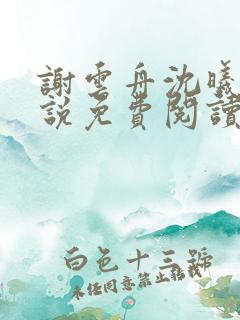 謝雲舟沈曦
說免費閱讀
白色十三號
未經同意禁止轉載